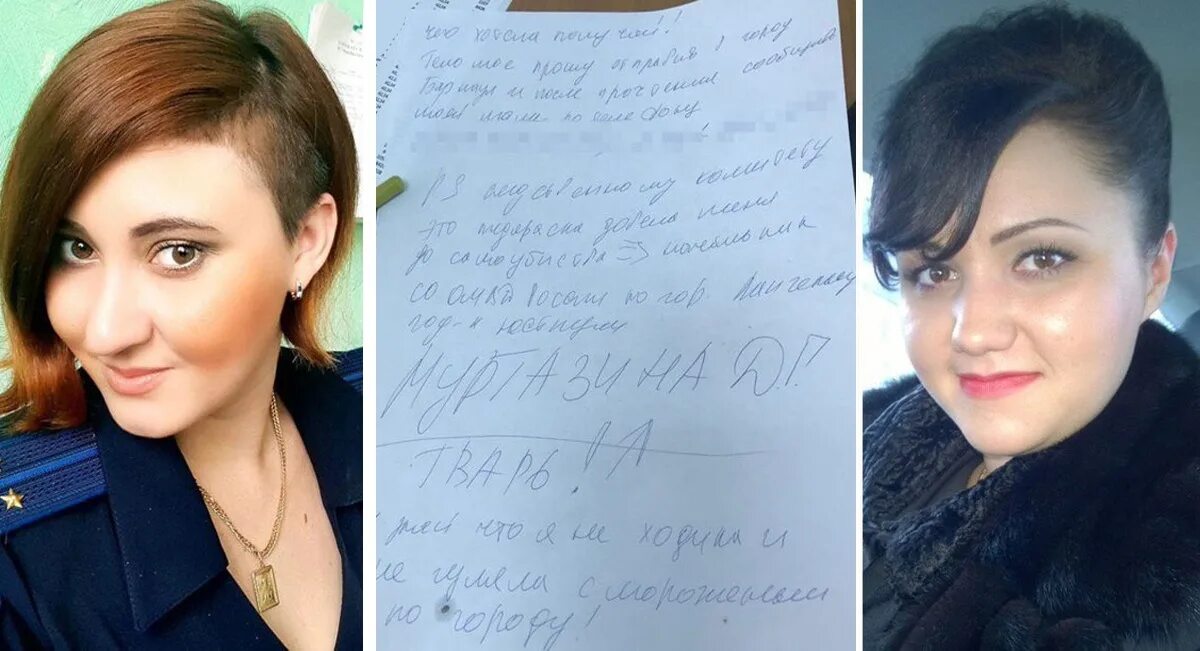 что хотела получай!!
Тело мое прошу отправив в город
Барнаул и после прочтения сообщив
моей мама по телефону
PS следственному комитету
это довела меня
до самоубийства => начальник
СО ОМВД России по гор. Лангепасу
МУРГАЗИНА Д.Г.
ТВАРЬ!
что я не ходила и
не гуляла с мороженым
по городу!